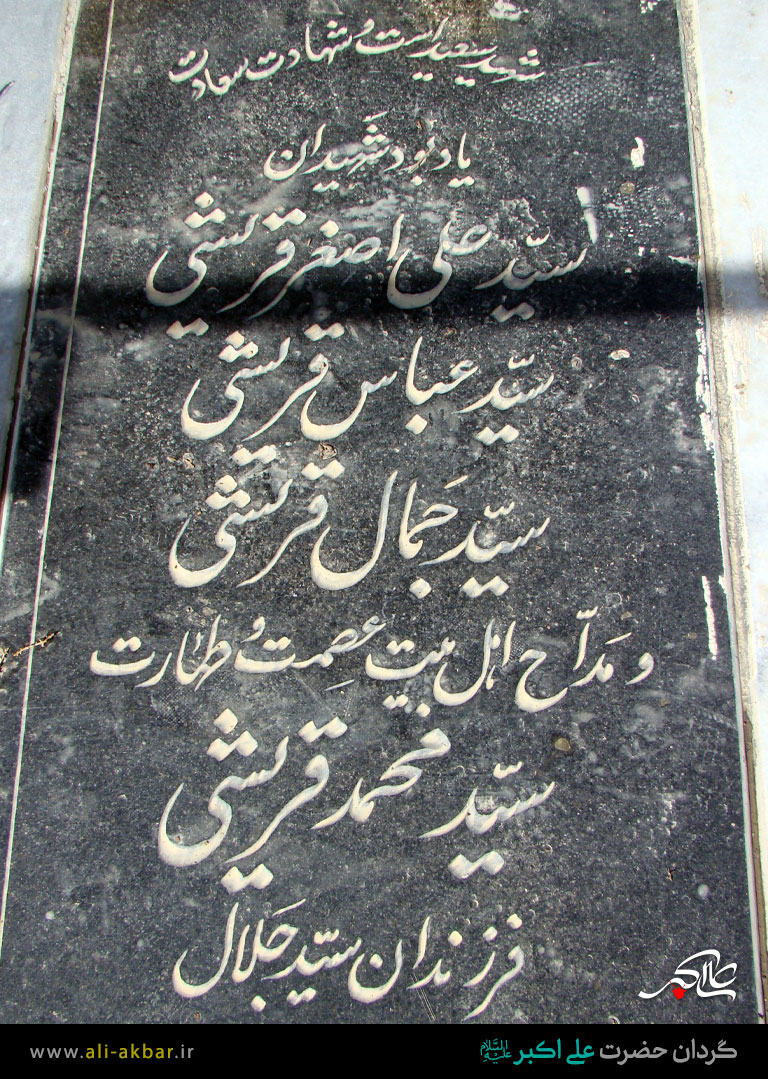 شهید سعید است و شهادت سعادت
یادبود شهیدان
سیّد علی اصغر قریشی
سیّد عباس قریشی
سیّد جَمال قریشی
و مَدّاح اهل بیت عصِمت وُ طهارت
سیّد محمّد قریشی
فرزندان سیّد جَلال
علی اکبر
گردان حضرت علی اکبر علیه السلام
www.ali-akbar.ir